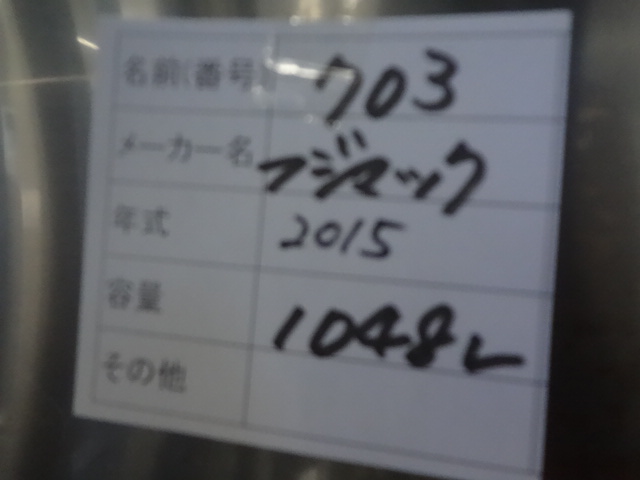 名前(番号) 703
メーカー名 フジマック
年式 2015
容量 1048L
その他